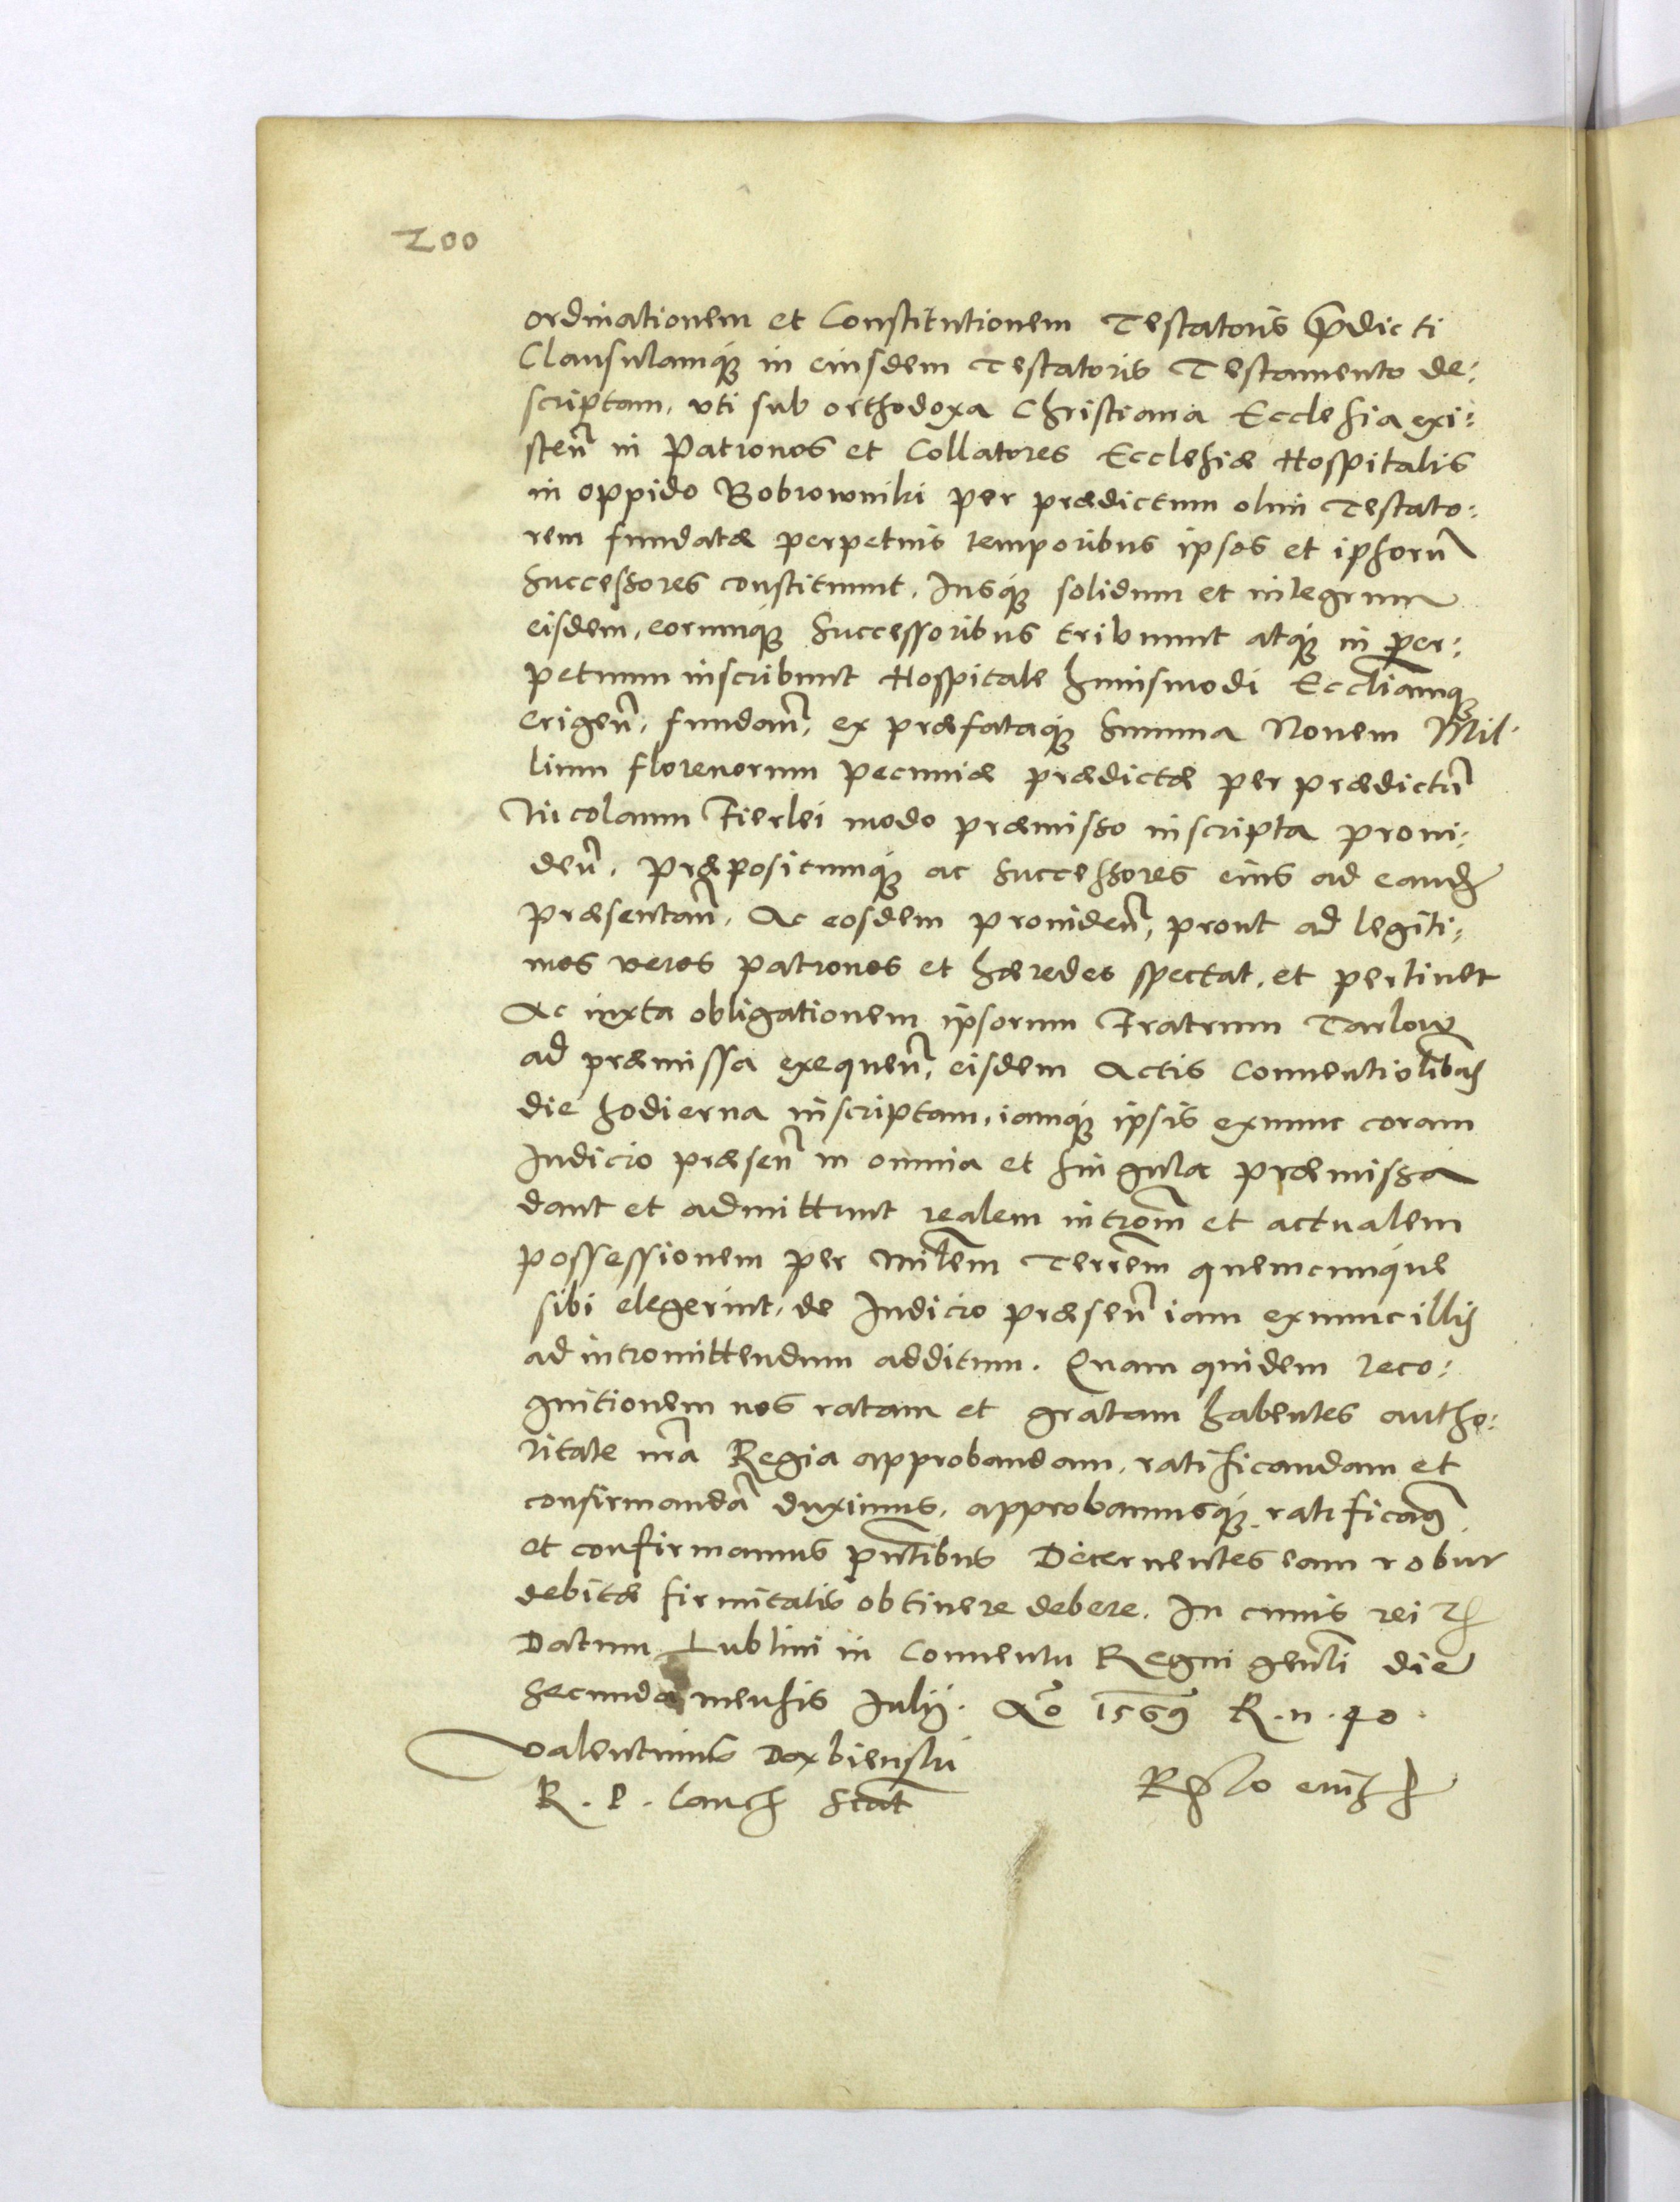 200
ordinationem et Constitutionem Testatoris prædicti
Clausulamq́ue in eiusdem Testatoris Testamento de:
scriptam, vti sub orthodoxa Christiana Ecclesia exi:
sten̄ in Patronos et Collatores Ecclesiæ Hospitalis
in oppido Bobrowniki per prædictum olim Testato:
rem fundatæ perpetuis temporibus ipsos et ipsorū
Successores constituunt. Iusq́ue solidum et integrum
eisdem, eorumq́ue Successoribus tribuunt atq́ue in per:
petuum inscribunt Hospitale huiusmodi Eccl̄iamq̨
erigen̄, fundan̄, ex præfataq́ue Summa Nouem Mil:
lium florenorum pecuniæ prædictæ per prædictū
Nicolaum Fierlei modo præmisso inscripta proui:
den̄. Præpositumq́ue ac Successores eius ad eand̨
præsentan̄. Ac eosdem prouiden̄, prout ad legiti:
mos veros patronos et hæredes spectat, et pertinet
Ac iuxta obligationem ipsorum Fratrum Tarlow
ad præmissa exequen̄, eisdem Actis Conuentiol̄ibq̨
die hodierna inscriptam, iamq́ue ipsis exnunc coram
Iudicio præsen̄ in omnia et singula præmissa
dant et admittunt realem introm̄ et actualem
possessionem per mil̄em Terrēm quemcunque
sibi elegerint, de Iudicio præsen̄ iam exnunc illis
ad intromittendum additum. Quam quidem reco:
gnitionem nos ratam et gratam habentes autho:
ritate nr̄a Regia approbandam, ratificandam et
confirmandā duximus, approbamusq́ue ratificam̨
et confirmamus pn̄tibus Decernentes eam robur
debitæ firmitatis obtinere debere. In cuius rei
Datum Lublini in Conuentu Regni gen̄li die
Secunda mensis Iulij. Aō 1569 R. n. 40.
Valentinus Dembienski
R. P. Canc̨